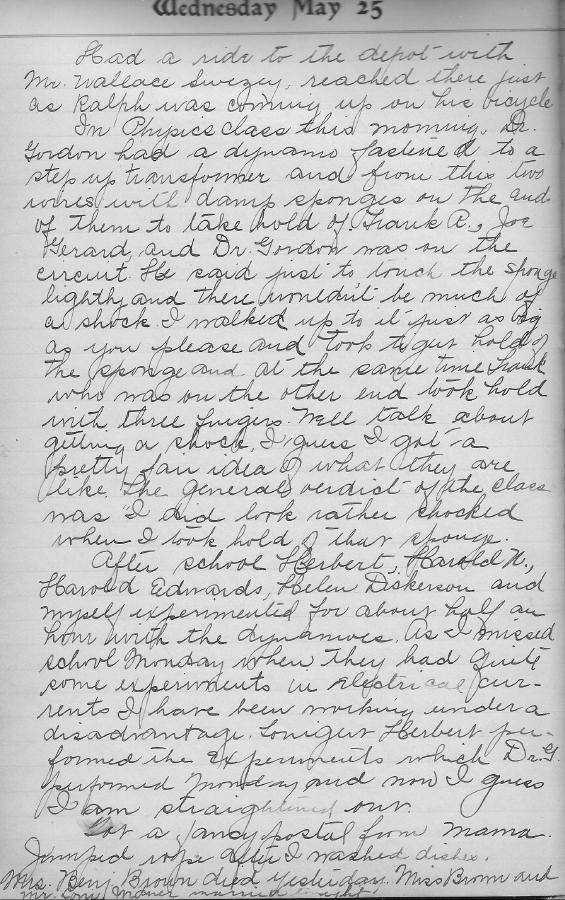 Wednesday May 25
Had a ride to the depot with
Mr. Wallace Swezey, reached there just
as Ralph was coming up on his bicycle
In Physics class this morning, Dr.
Gordon had a dynamo fastened to a
step up transformer and from this two
wires with damp sponges on the ends
of them to take hold of. Frank R., Joe
Gerard, and Dr. Gordon was on the
circuit. He said just to touch the sponge
lightly and there wouldn't be much of
a shock. I walked up to it just as big
as you please and took to get hold of
the sponge and at the same time Frank
who was on the other end took hold
with three fingers. Well talk about
getting a shock, I guess I got a
pretty fair idea of what they are
like. The general verdict of the class
was "I did look rather shocked
when I took hold of that sponge.
After school Herbert, Harold N.,
Harold Edwards, Helen Dickerson and
myself experimented for about half an
hour with the dynamos. As I missed
school Monday when they had quite
some experiments in electrical cur-
rents I have been working under a
disadvantage. Tonight Herbert per-
formed the experiments which Dr. G.
performed Monday and now I guess
I am straightened out.
Got a fancy postal from Mama.
Jumped rope after I washed dishes.
Mrs. Benj. Brown died yesterday. Miss Brown and
Mr. married tonight!